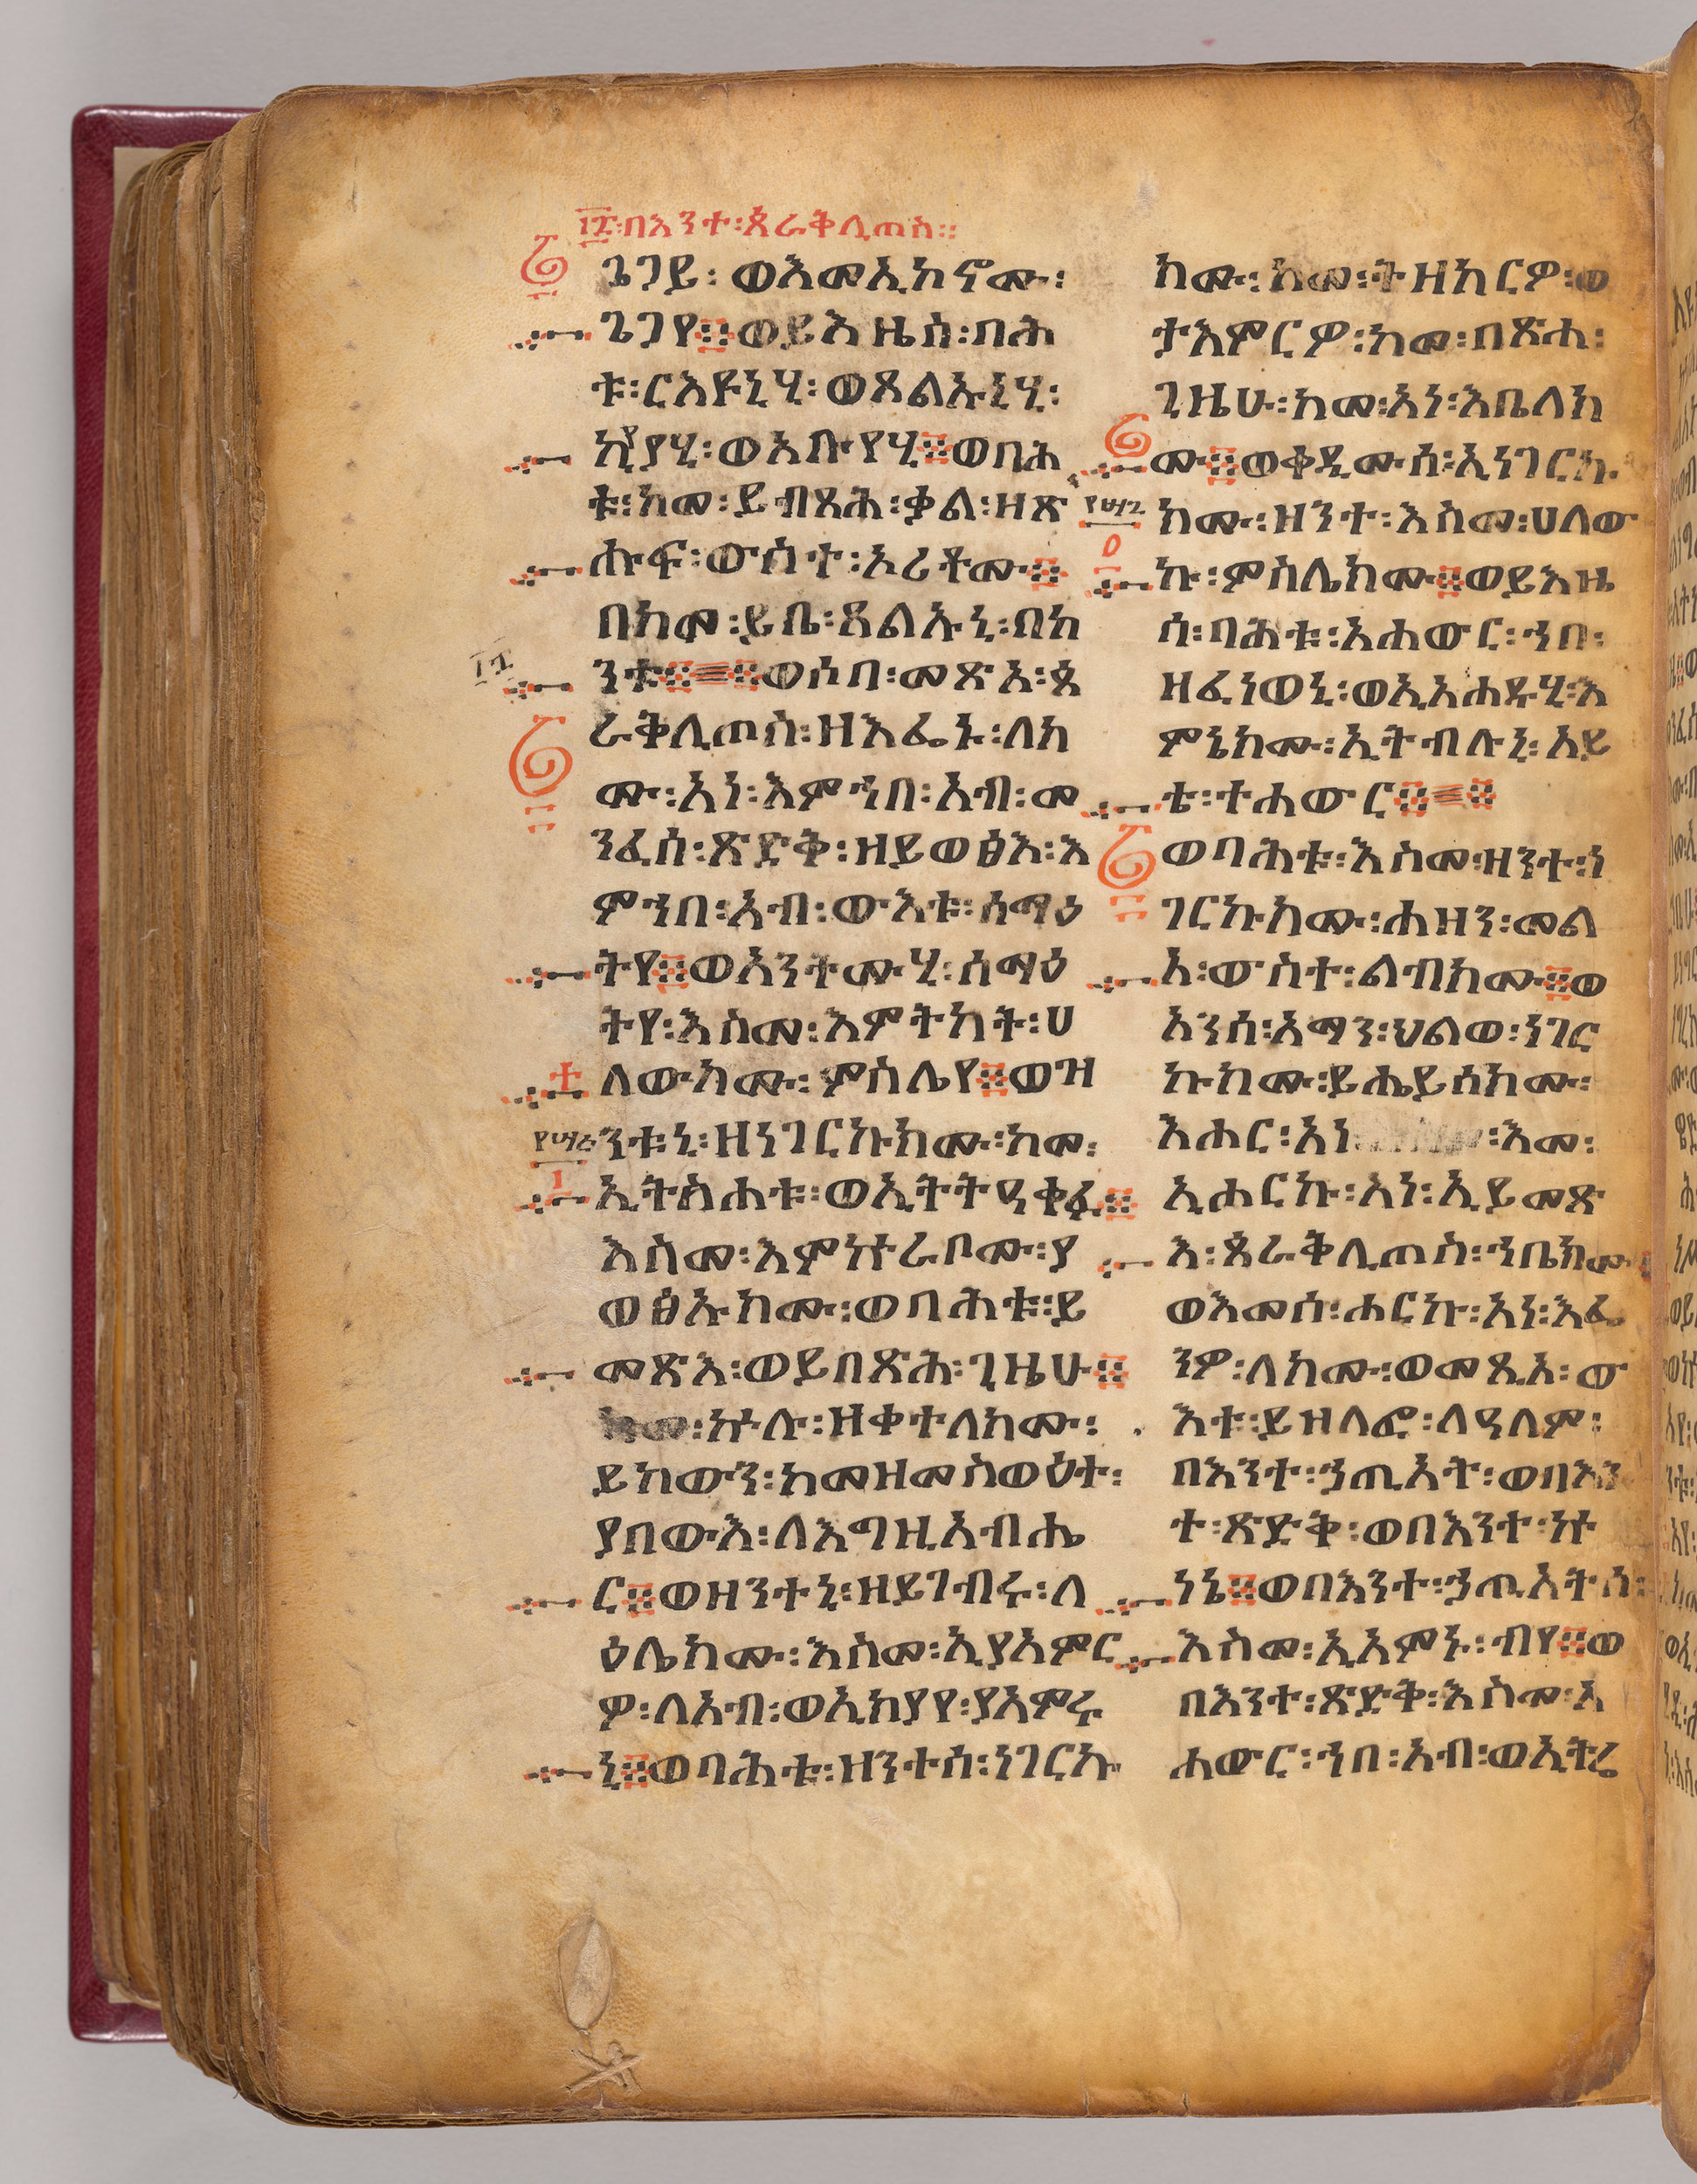 ፲፯፡በእንተ፡ጰራቅሊጦስ።
ጌጋይ፡ወእመአኮኖሙ፡
ጌጋየ፨ወይእዜሰ፡ባሕ
ቱ፡ርእዩኒሂ፡ወጸልኡኒሂ፡
ኪያየሂ፡ወአቡየሂ፨ወባሕ
ቱ፡ከመ፡ይብጻሕ፡ቃል፡ዘጽ
ሑፍ፡ውስተ፡ኦሪቶሙ፨
በከመ፡ይቤ፡ጸልኡኒ፡በከ
ንቱ፨፨ወሶበ፡መጽአ፡ጰ
ራቅሊጦስ፡ዘእፌኑ፡ለክ
ሙ፡አነ፡እምኀበ፡አብ፡መ
ንፈሰ፡ጽድቅ፡ዘይወፅእ፡እ
ምኀበ፡አብ፡ውእቱ፡ሰማዕ
ትየ፨ወአንትሙሂ፡ሰማዕ
ትየ፡እስመ፡እምትካት፡ሀ
ለውክሙ፡ምስሌየ፨ወዝ
ንቱኒ፡ዘነገርኩክሙ፡ከመ፡
ኢትስሐቱ፡ወኢትትዓቀፉ፨
እስመ፡እምነትራቦሙ፡ያ
ወፅኡክሙ፡ወባሕቱ፡ይ
መጽእ፡ወይበጽሕ፡ጊዜሁ፨
ከመ፡ኵሉ፡ዘቀተለክሙ፡
ይከውን፡ከመዘመስዋዕተ፡
ያበውእ፡ለእግዚአብሔ
ር፨ወዘንተኒ፡ዘይገብሩ፡ላ
ዕሌክሙ፡እስመ፡ኢያአምር
ዎ፡ለአብ፡ወኢኪያየ፡ያአምሩ
ኒ፨ወባሕቱ፡ዘንተሰ፡ነገርኩ
ክሙ፡ከመ፡ትዘከርዎ፡ወ
ታእምርዎ፡ከመ፡በጽሐ፡
ጊዜሁ፡ከመ፡አነ፡እቤለክ
ሙ፨ወቀዲሙሰ፡ኢነገርኩ
ክሙ፡ዘንተ፡እስመ፡ሀለው
ኩ፡ምስሌክሙ፨ወይእዜ
ሰ፡ባሕቱ፡አሐውር፡ኀበ፡
ዘፈነወኒ፡ወኢአሐዱሂ፡እ
ምኔክሙ፡ኢትብሉኒ፡አይ
ቴ፡ተሐውር፨፨
ወባሕቱ፡እስመ፡ዘንተ፡ነ
ገርኩክሙ፡ሐዘን፡መል
አ፡ውስተ፡ልብክሙ፨ወ
አንሰ፡አማን፡ህልወ፡ነገር
ኩክሙ፡ይሔይሰክሙ፡
እሖር፡አነ፡እመ፡
ኢሖርኩ፡አነ፡ኢይመጽ
እ፡ጰራቅሊጦስ፡ኀቤክሙ
ወእመሰ፡ሖርኩ፡አነ፡እፌ
ንዎ፡ለክሙ፡ወመጺኦ፡ው
እቱ፡ይዝለፎ፡ለዓለም፡
በእንተ፡ኃጢአት፡ወበእን
ተ፡ጽድቅ፡ወበእንተ፡ኵ
ነኔ፨ወበእንተ፡ኃጢአትሰ፡
እስመ፡ኢአምኑ፡ብየ፨ወ
በእንተ፡ጽድቅ፡እስመ፡አ
ሐውር፡ኀበ፡አብ፡ወኢትሬ